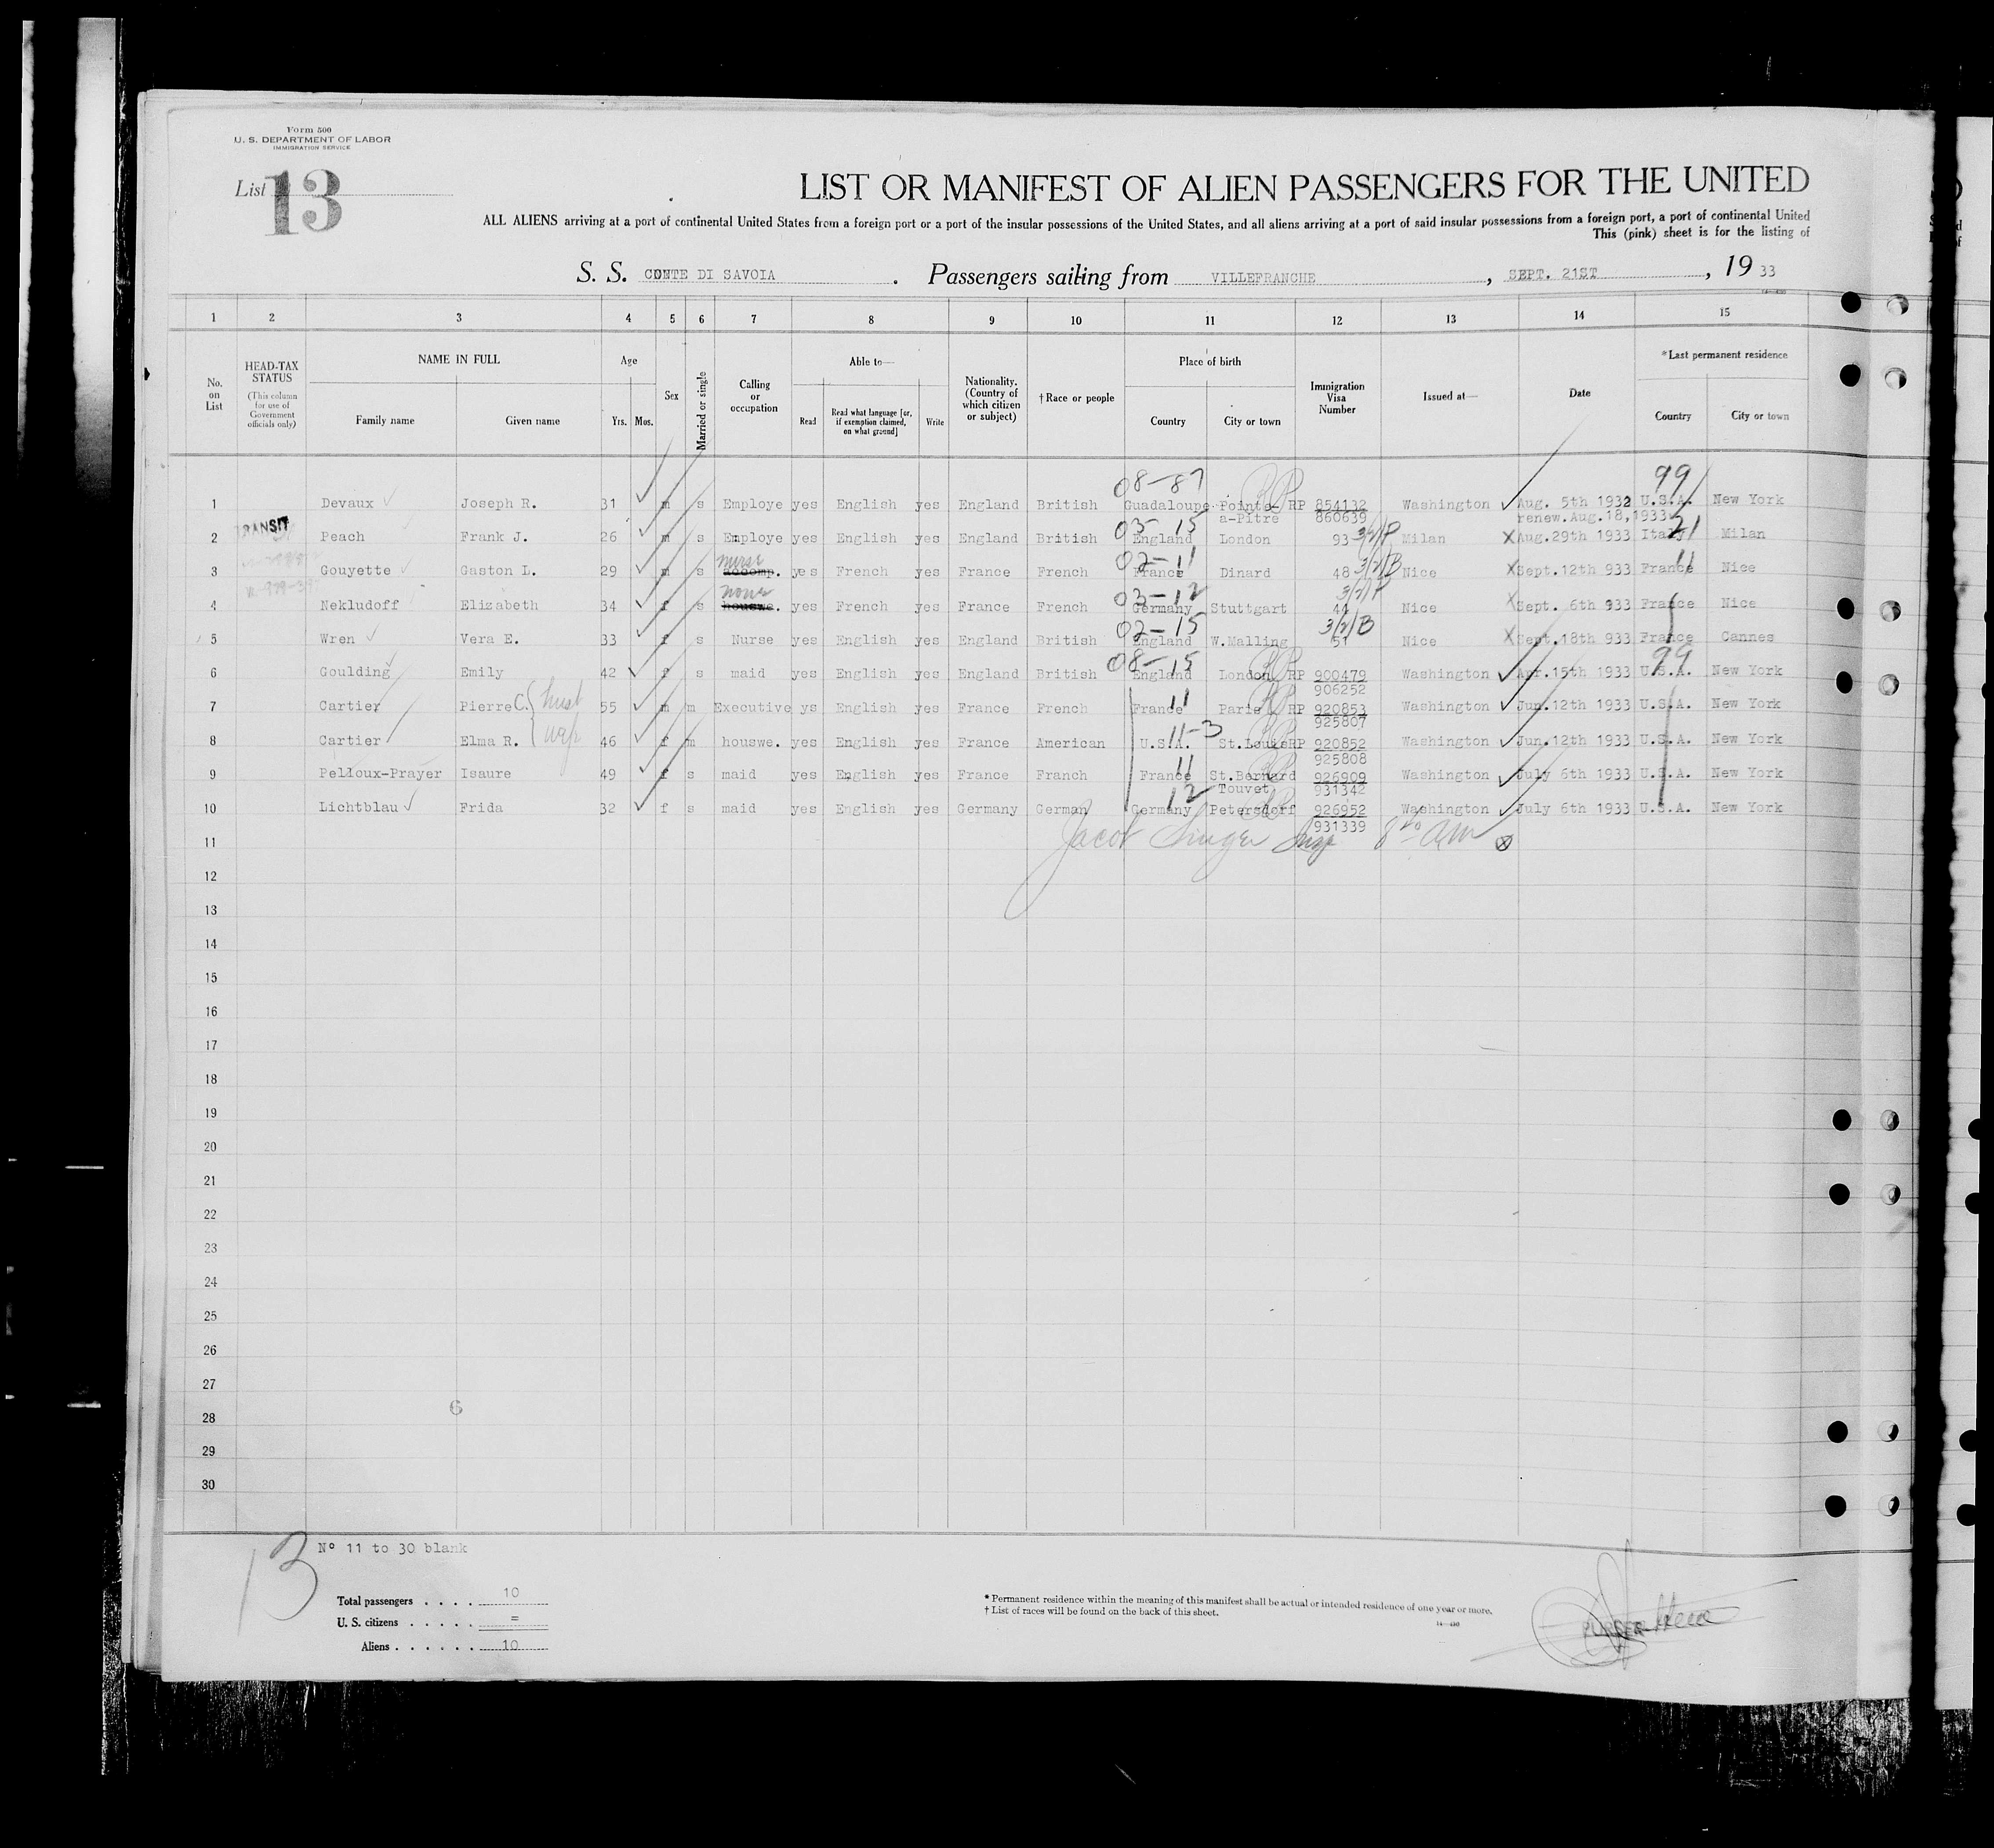 Form 500
U. S. DEPARTMENT OF LABOR
IMMIGRATION SERVICE
List 13
LIST OR MANIFEST OF ALIEN PASSENGERS FOR THE UNITED
ALL ALIENS arriving at a port of continental United States from a foreign port or a port of the insular possessions of the United States, and all aliens arriving at a port of said insular possessions from a foreign port, a port of continental United
This (pink) sheet is for the listing of
S. S. CONTE DI SAVOIA . Passengers sailing from VILLEFRANCHE , SEPT. 21ST , 19 33
1 2 3 4 5 6 7 8 9 10 11 12 13 14 15
No. on List
HEAD-TAX STATUS
(This column for use of Government officials only)
NAME IN FULL
Family name Given name
Age
Yrs. Mos.
Sex
Married or single
Calling or occupation
Able to—
Read Read what language [or, if exemption claimed, on what ground] Write
Nationality. (Country of which citizen or subject)
† Race or people
Place of birth
Country City or town
Immigration Visa Number
Issued at—
Date
*Last permanent residence
Country City or town
08-87 99
1 Devaux Joseph R. 31 m s Employe yes English yes England British Guadaloupe Pointe- RP 854132 Washington Aug. 5th 1932 U.S.A. New York
a-Pitre 860639 renew.Aug.18,1933
TRANSIT 03-15 3/2/P 21
2 Peach Frank J. 26 m s Employe yes English yes England British England London 93 Milan Aug.29th 1933 Italy Milan
nurse 02-11 3/2/B 11
3 Gouyette Gaston L. 29 m s accomp. yes French yes France French France Dinard 48 Nice Sept.12th 933 France Nice
none 03-12 3/2/P
4 Nekludoff Elizabeth 34 f s houswe. yes French yes France French Germany Stuttgart 44 Nice Sept. 6th 933 France Nice
02-15 3/2/B
5 Wren Vera E. 33 f s Nurse yes English yes England British England W.Malling 51 Nice Sept.18th 933 France Cannes
08-15 99
6 Goulding Emily 42 f s maid yes English yes England British England London RP 900479 Washington Apr.15th 1933 U.S.A. New York
906252
7 Cartier Pierre C. husb 55 m m Executive ys English yes France French France 11 Paris RP 920853 Washington Jun.12th 1933 U.S.A. New York
925807
8 Cartier Elma R. wife 46 f m houswe. yes English yes France American U.S.A. 11-3 St.Louis RP 920852 Washington Jun.12th 1933 U.S.A. New York
925808
9 Pelloux-Prayer Isaure 49 f s maid yes English yes France Franch France 11 St.Bernard 926909 Washington July 6th 1933 U.S.A. New York
Touvet 931342
10 Lichtblau Frida 32 f s maid yes English yes Germany German Germany 12 Petersdorf 926952 Washington July 6th 1933 U.S.A. New York
931339
11 Jacob Singer Insp am
12
13
14
15
16
17
18
19
20
21
22
23
24
25
26
27
28 6
29
30
13
Nº 11 to 30 blank
Total passengers . . . . 10
U. S. citizens . . . . . =
Aliens . . . . . . 10
* Permanent residence within the meaning of this manifest shall be actual or intended residence of one year or more.
† List of races will be found on the back of this sheet.
PURSER